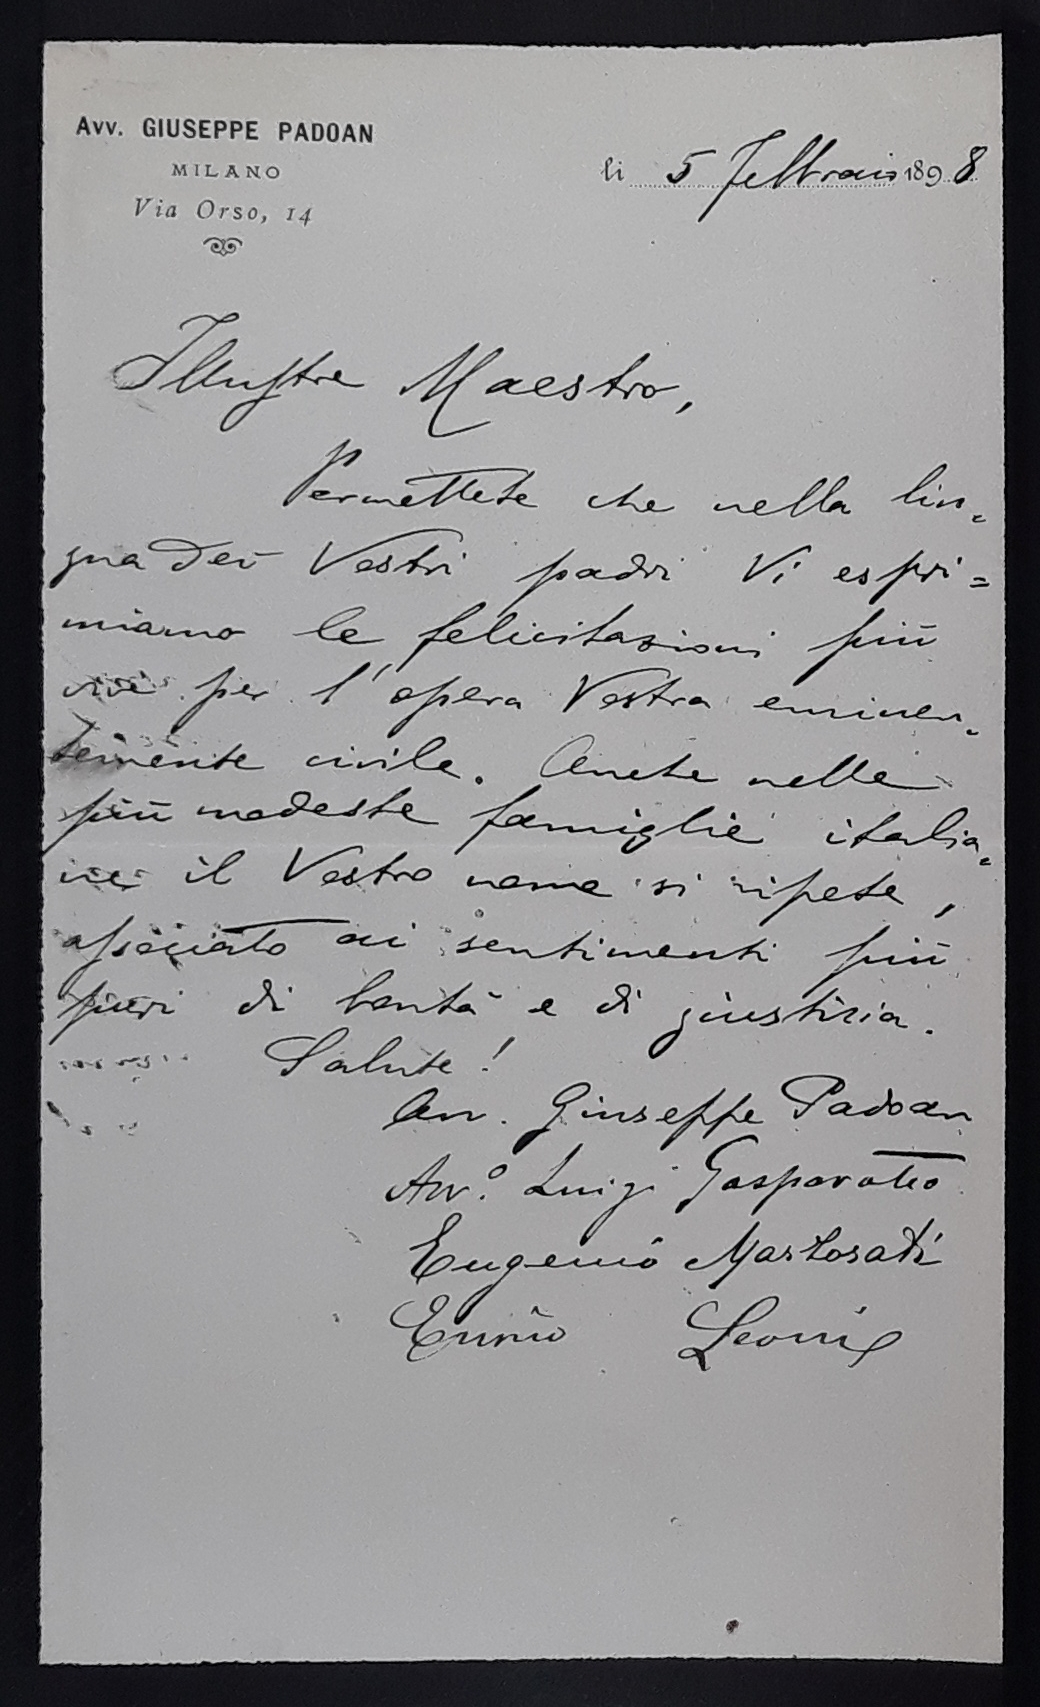 Avv. GIUSEPPE PADOAN
MILANO
Via Orso, 14
li 5 Febbraio 1898
Illustre Maestro,
Permettete che nella lin-
gua dei Vostri padri Vi espri=
miamo le felicitazioni più
vive per l'opera Vestra eminen-
temente civile. Anche nelle
più modeste famiglie italia-
ne il Vostro nome si ripete,
associato ai sentimenti più
puri di bontà e di giustizia.
Salute!
Avv. Giuseppe Padoan
Avv.º Luigi Gasparotto
Eugenio
Ennio